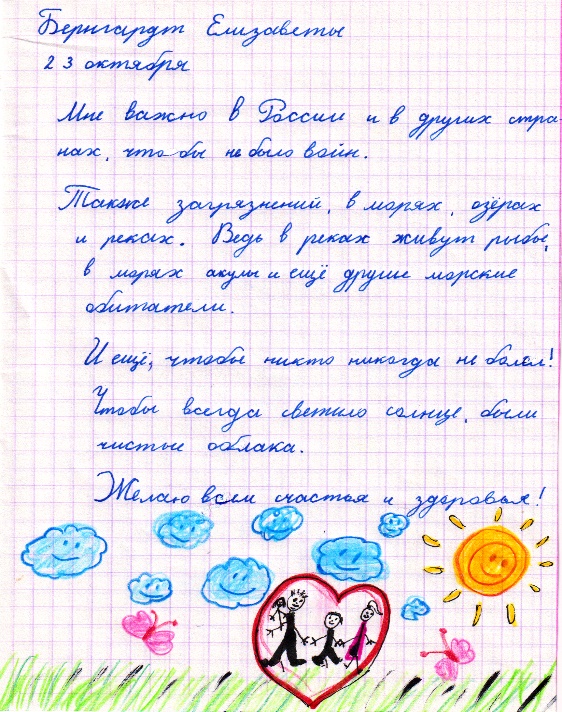 Бернгардт Елизаветы
23 октября
Мне важно в России и в других стра-
нах, что бы не было войн.
Также загрязнений, в морях, озёрах
и реках. Ведь в реках живут рыбы,
в морях акулы и ещё другие морские
обитатели.
И ещё, чтобы никто никогда не болел!
Чтобы всегда светило солнце, были
чистые облака.
Желаю всем счастья и здоровья!